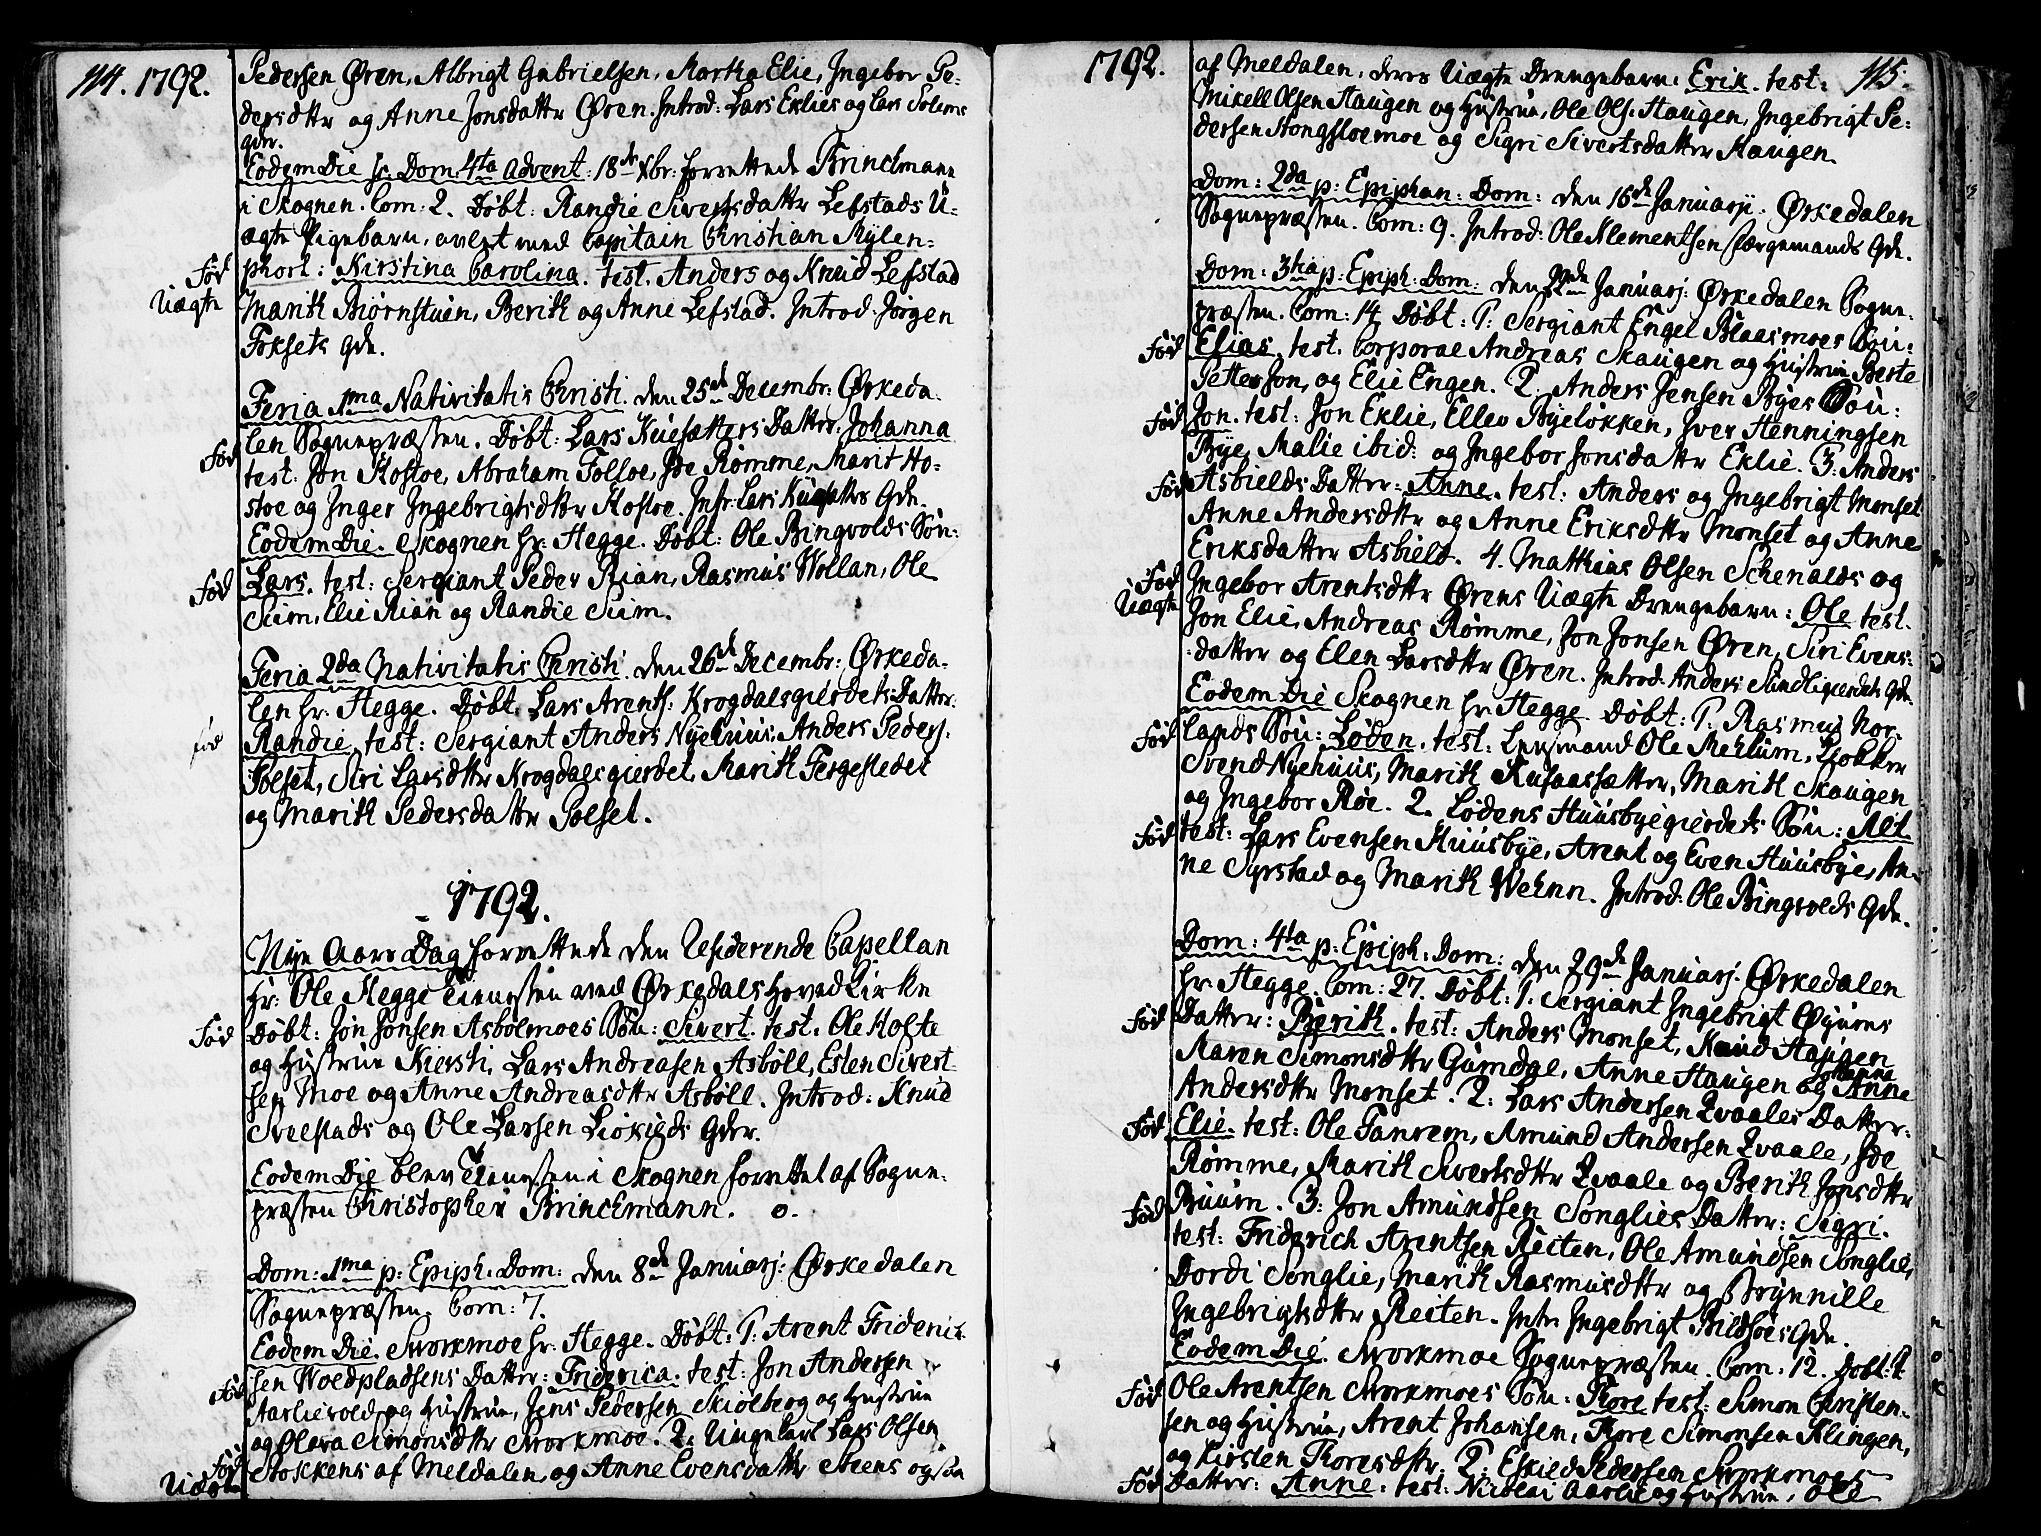 114. 1792.
Pedersen Øren, Albrigt Gabrielsen, Martha Elie, Ingebor Pe-
dersdttr og Anne Jonsdattr Øren. Introd: Lars Eklies og Lars Solems
gdr.
Eodem Die sc: Dom: 4ta Advent: 18de Xbr: forrettede Brinchmann
i Skognen. Com: 2. Døbt: Randie Sivertsdattr Lefstads U-
ægte Pigebarn, avlet med Capitain Christian Mylen-
phort: Kirstina Carolina. test. Anders og Knud Lefstad
Fød
Uægte
Marith Biørnstuen, Berith og Anne Lefstad. Introd: Jørgen
Foksets Qde.
Feria 1ma Nativitatis Christi. den 25de Decembr: Ørkeda-
len Sognepræsten. Døbt: Lars Kuesætters Datter: Johanna
Fød
test: Jon Hostoe, Abraham Solloe, Ide Rømme, Marit Ho-
stoe og Inger Ingebrigtsdttr Hostoe. Intr: Lars Kuesættrs Qde.
Eodem Die. Skognen hr: Hegge. Døbt: Ole Ringvolds Søn:
Fød
Lars. test: Sergiant Peder Rian, Rasmus Wollan, Ole
Siim, Elie Rian og Randie Siim.
Feria 2da Nativitatis Christi. den 26de Decembr: Ørkeda-
len hr: Hegge. Døbt: Lars Arents: Krogdalsgierdets Datter:
fød
Randie. test: Sergiant Anders Nyehuus, Anders Peders:
Solset, Siri Larsdttr Krogdalsgierdet, Marith Fergestedet
og Marith Pedersdattr Solset.
1792.
Nye Aars Dag forrettede den Residerende Capellan
hr: Ole Hegge Tienesten ved Ørkedals Hoved Kirke
Fød
Døbt: Jon Jonsen Asbølmoes Søn: Sivert. test: Ole Holte
og Hustrue Kiersti, Lars Andreasen Asbøll, Esten Sivert-
sen Moe og Anne Andreasdttr Asbøll. Introd: Knud
Svelstads og Ole Larsen Qdrr.
Eodem Die blev Tienesten i Skognen forrettet af Sogne-
præsten Christopher Brinchmann. o.
Dom: 1ma p: Epiph. Dom: den 8de Januarj: Ørkedalen
Sognepræsten. Com: 7.
Eodem Die. Svorkmoe hr: Hegge. Døbt: 1: Arent Friderich-
sen Woldpladsens Datter: Friderica. test: Jon Andersen
Fød
Aarlievold og Hustrue, Jens Pedersen Skiølberg og Hustrue
og Olava Simonsdttr Svorkmoe. 2. Ungekarl Lars Olsen
Fød
Uægte
Stokkens af Meldalen og Anne Evensdattr Steens ogsaa
1792.
115.
af Meldalen, deres Uægte Drengebarn: Erik. test:
Mikell Olsen Haugen og Hustrue, Ole Ols: Haugen, Ingebrigt Pe-
dersen Hongsloemoe og Sigri Sivertsdatter Haugen.
Dom: 2da p: Epiphan: Dom: den 15de Januarji: Ørkedalen
Sognepræsten. Com: 9. Introd: Ole Klementsen Færgemands Qde.
Dom: 3tia p: Epiph: Dom: den 22de Januarj: Ørkedalen Sogne-
præsten. Com: 14. Døbt: 1: Sergiant Engel Blaasmoes Søn:
Fød
Elias. test. Corporal Andreas Skaugen og Hustrue Berte
Petter Jon, og Elie Engen. 2. Anders Jensen Byes Søn:
Fød
Jon. test: Jon Eklie, Ellev Byeløkken, Iver Henningsen
Bye, Malie ibid: og Ingebor Jonsdattr Eklie. 3: Anders
Fød
Asbields Datter: Anne. test: Anders og Ingebrigt Monset
Anne Andersdttr og Anne Eriksdttr Monset og Anne
Eriksdatter Asbield. 4. Matthias Olsen Schenalds og
Fød
Uægte
Ingebor Arentsdttr Ørens Uægte Drengebarn: Ole test.
Jon Elie, Andreas Rømme, Jon Jonsen Øren, Siri Evens:
datter og Elen Larsdttr Øren. Introd: Anders Sundligierdets Qde.
Eodem Die Skognen hr: Hegge. Døbt: 1: Rasmus Nor-
Fød
lands Søn: Loden. test: Lensmand Ole Mehlum, Klokker
Svend Nyehuus, Marith Kusaassætter, Marith Skaugen
og Ingebor Røe. 2. Lodens Huusbyegierdets Søn: Alt
Fød
test: Lars Evensen Huusbye, Arent og Even Huusbye, An-
ne Syrstad og Marith Wehnn. Introd: Ole Ringvolds Qde.
Dom: 4ta p: Epiph: Dom: den 29de Januarj: Ørkedalen
hr: Hegge. Com: 27. Døbt: 1. Sergiant Ingebrigt Øyums
Fød
Datter: Berith. test: Anders Monset, Knud Haugen
Karen Simonsdttr Gumdal, Anne Haugen og Anne
Johanna
Andersdttr Monset. 2: Lars Andersen Qvaales Datter:
Fød
Elie. test: Ole Tanrem, Amund Andersen Qvaale, Ide
Rømme, Marith Sivertsdttr Qvaale og Berith Jonsdttr
Fød
Buurn. 3: Jon Amundsen Songlies Datter: Sigri.
test: Friderich Arentsen Reiten, Ole Amundsen Songlie,
Dordi Songlie, Marith Rasmusdttr og Brynnille
Ingebrigtsdttr Reiten. Intr: Ingebrigt Bildsoes Qde.
Eodem Die. Svorkmoe Sognepræsten. Com: 12. Døbt: 1.
Fød
Ole Arentsen Svorkmoes Søn: Tore test: Simon Christen-
sen og Hustrue, Arent Johansen, Tore Simonsen Klingen,
og Kirsten Toresdttr. 2. Eskild Pedersen Svorkmoes
Fød
Datter: Anne. test: Nicolai Aarlie og Hustrue, Ole